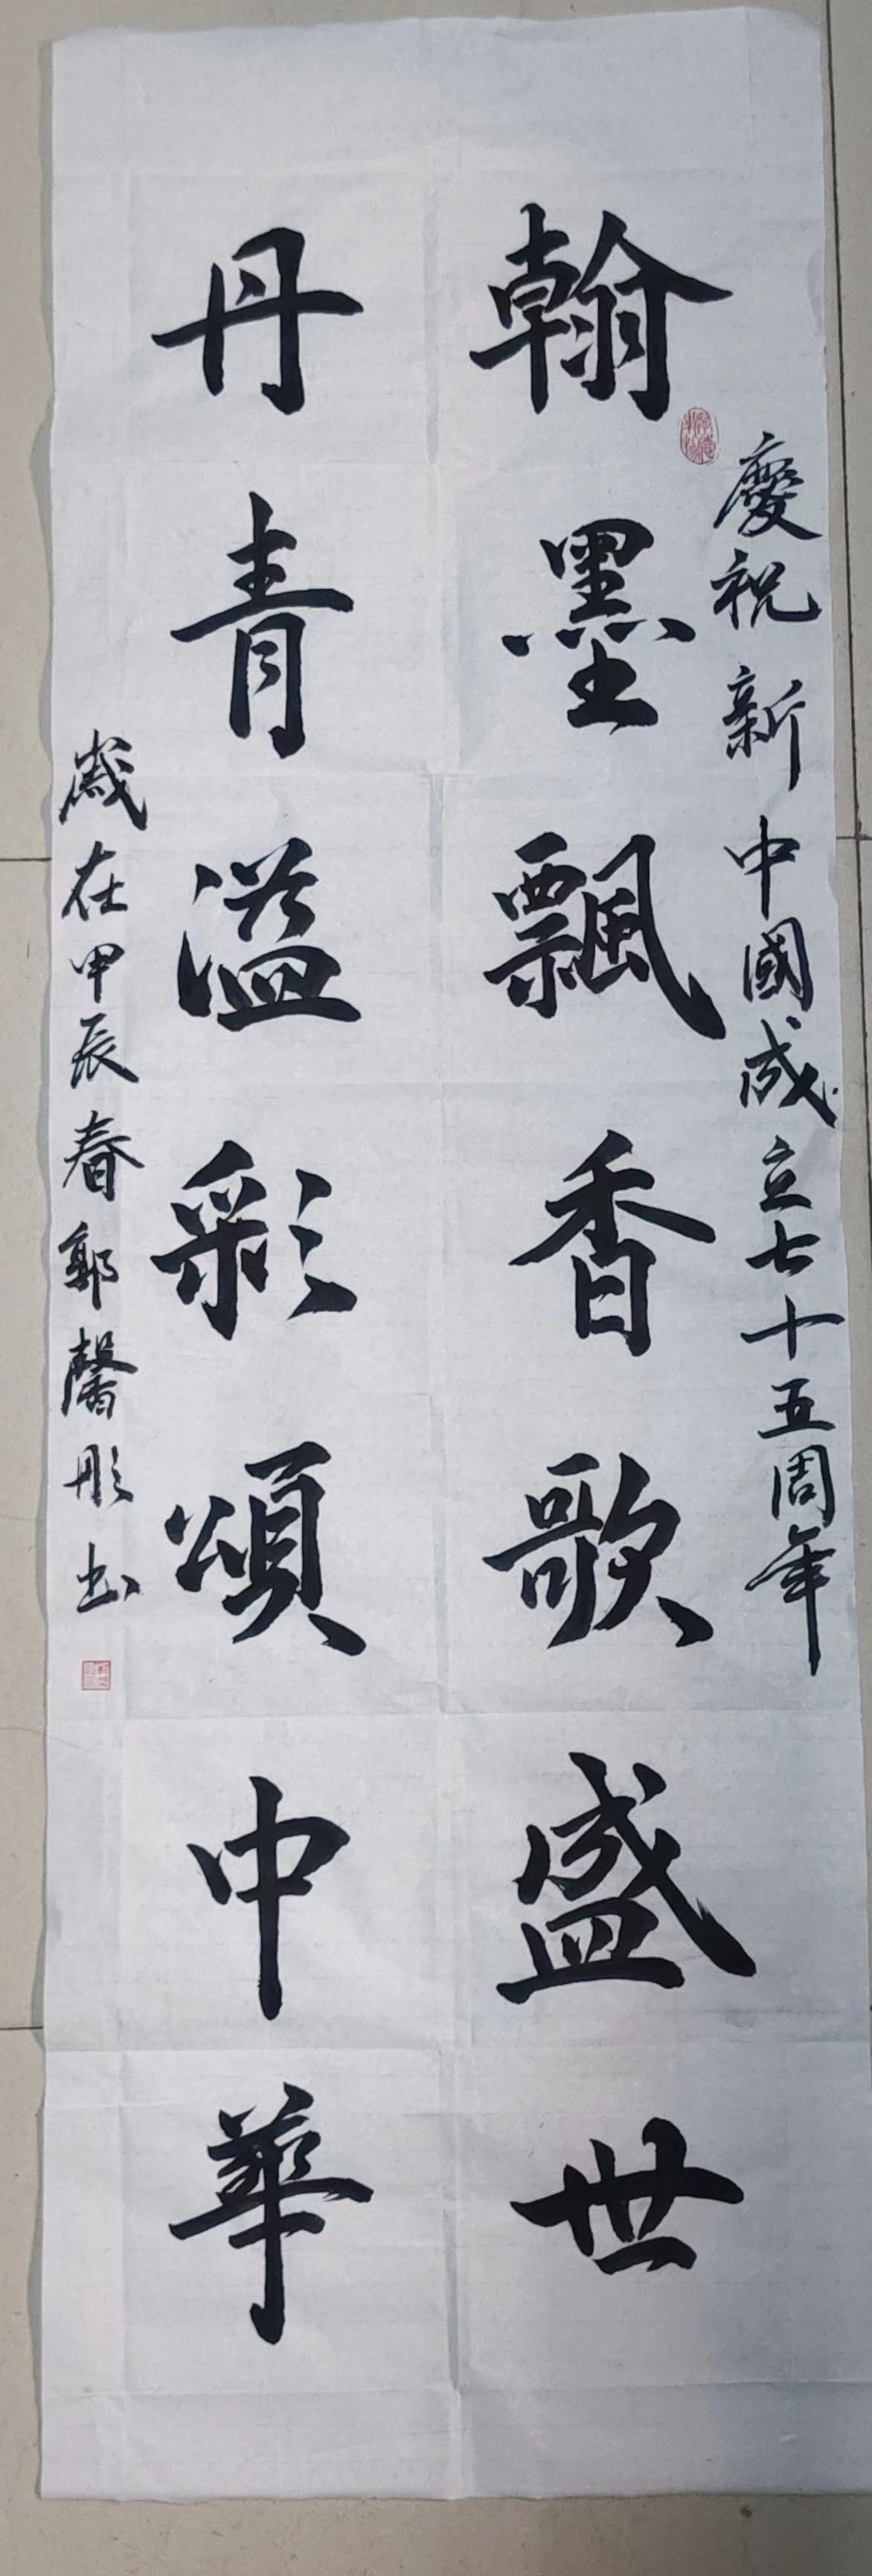 慶祝新中國成立七十五周年
翰墨飄香歌盛世
丹青溢彩頌中華
歲在甲辰春郭馨彤书